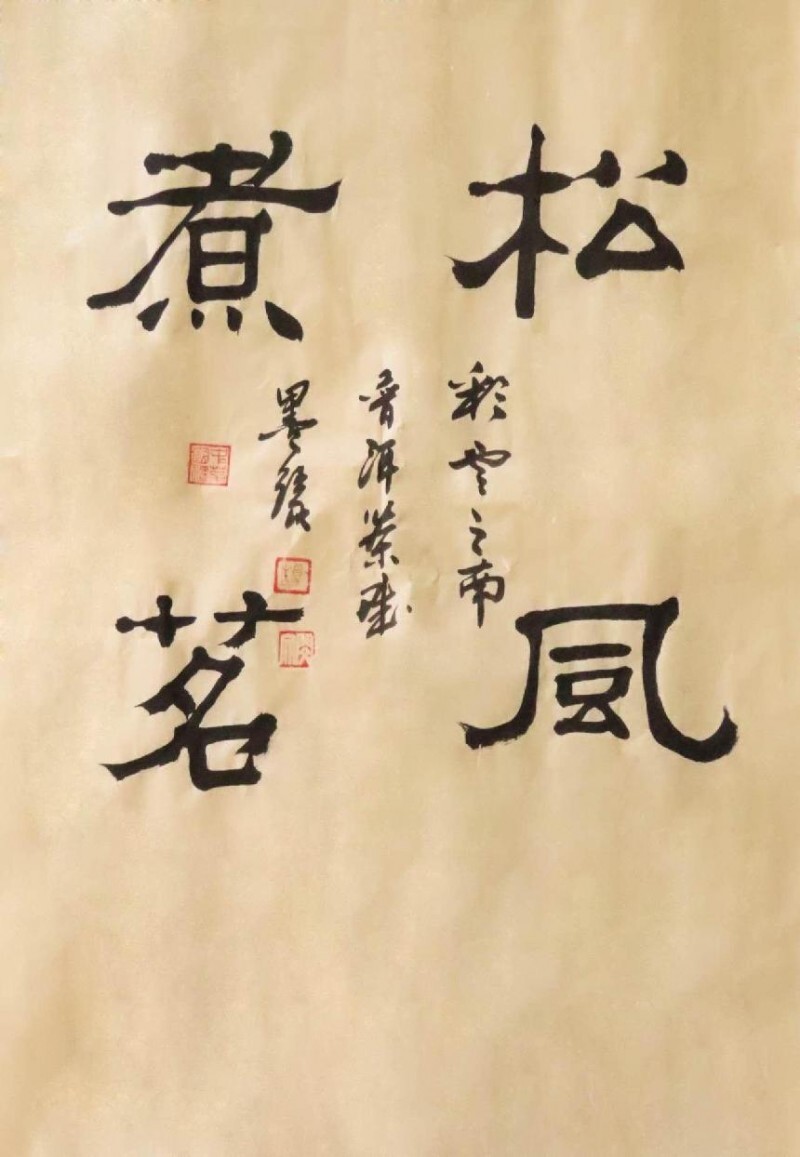 松風
煮茗
彩云之南
普洱茶
墨